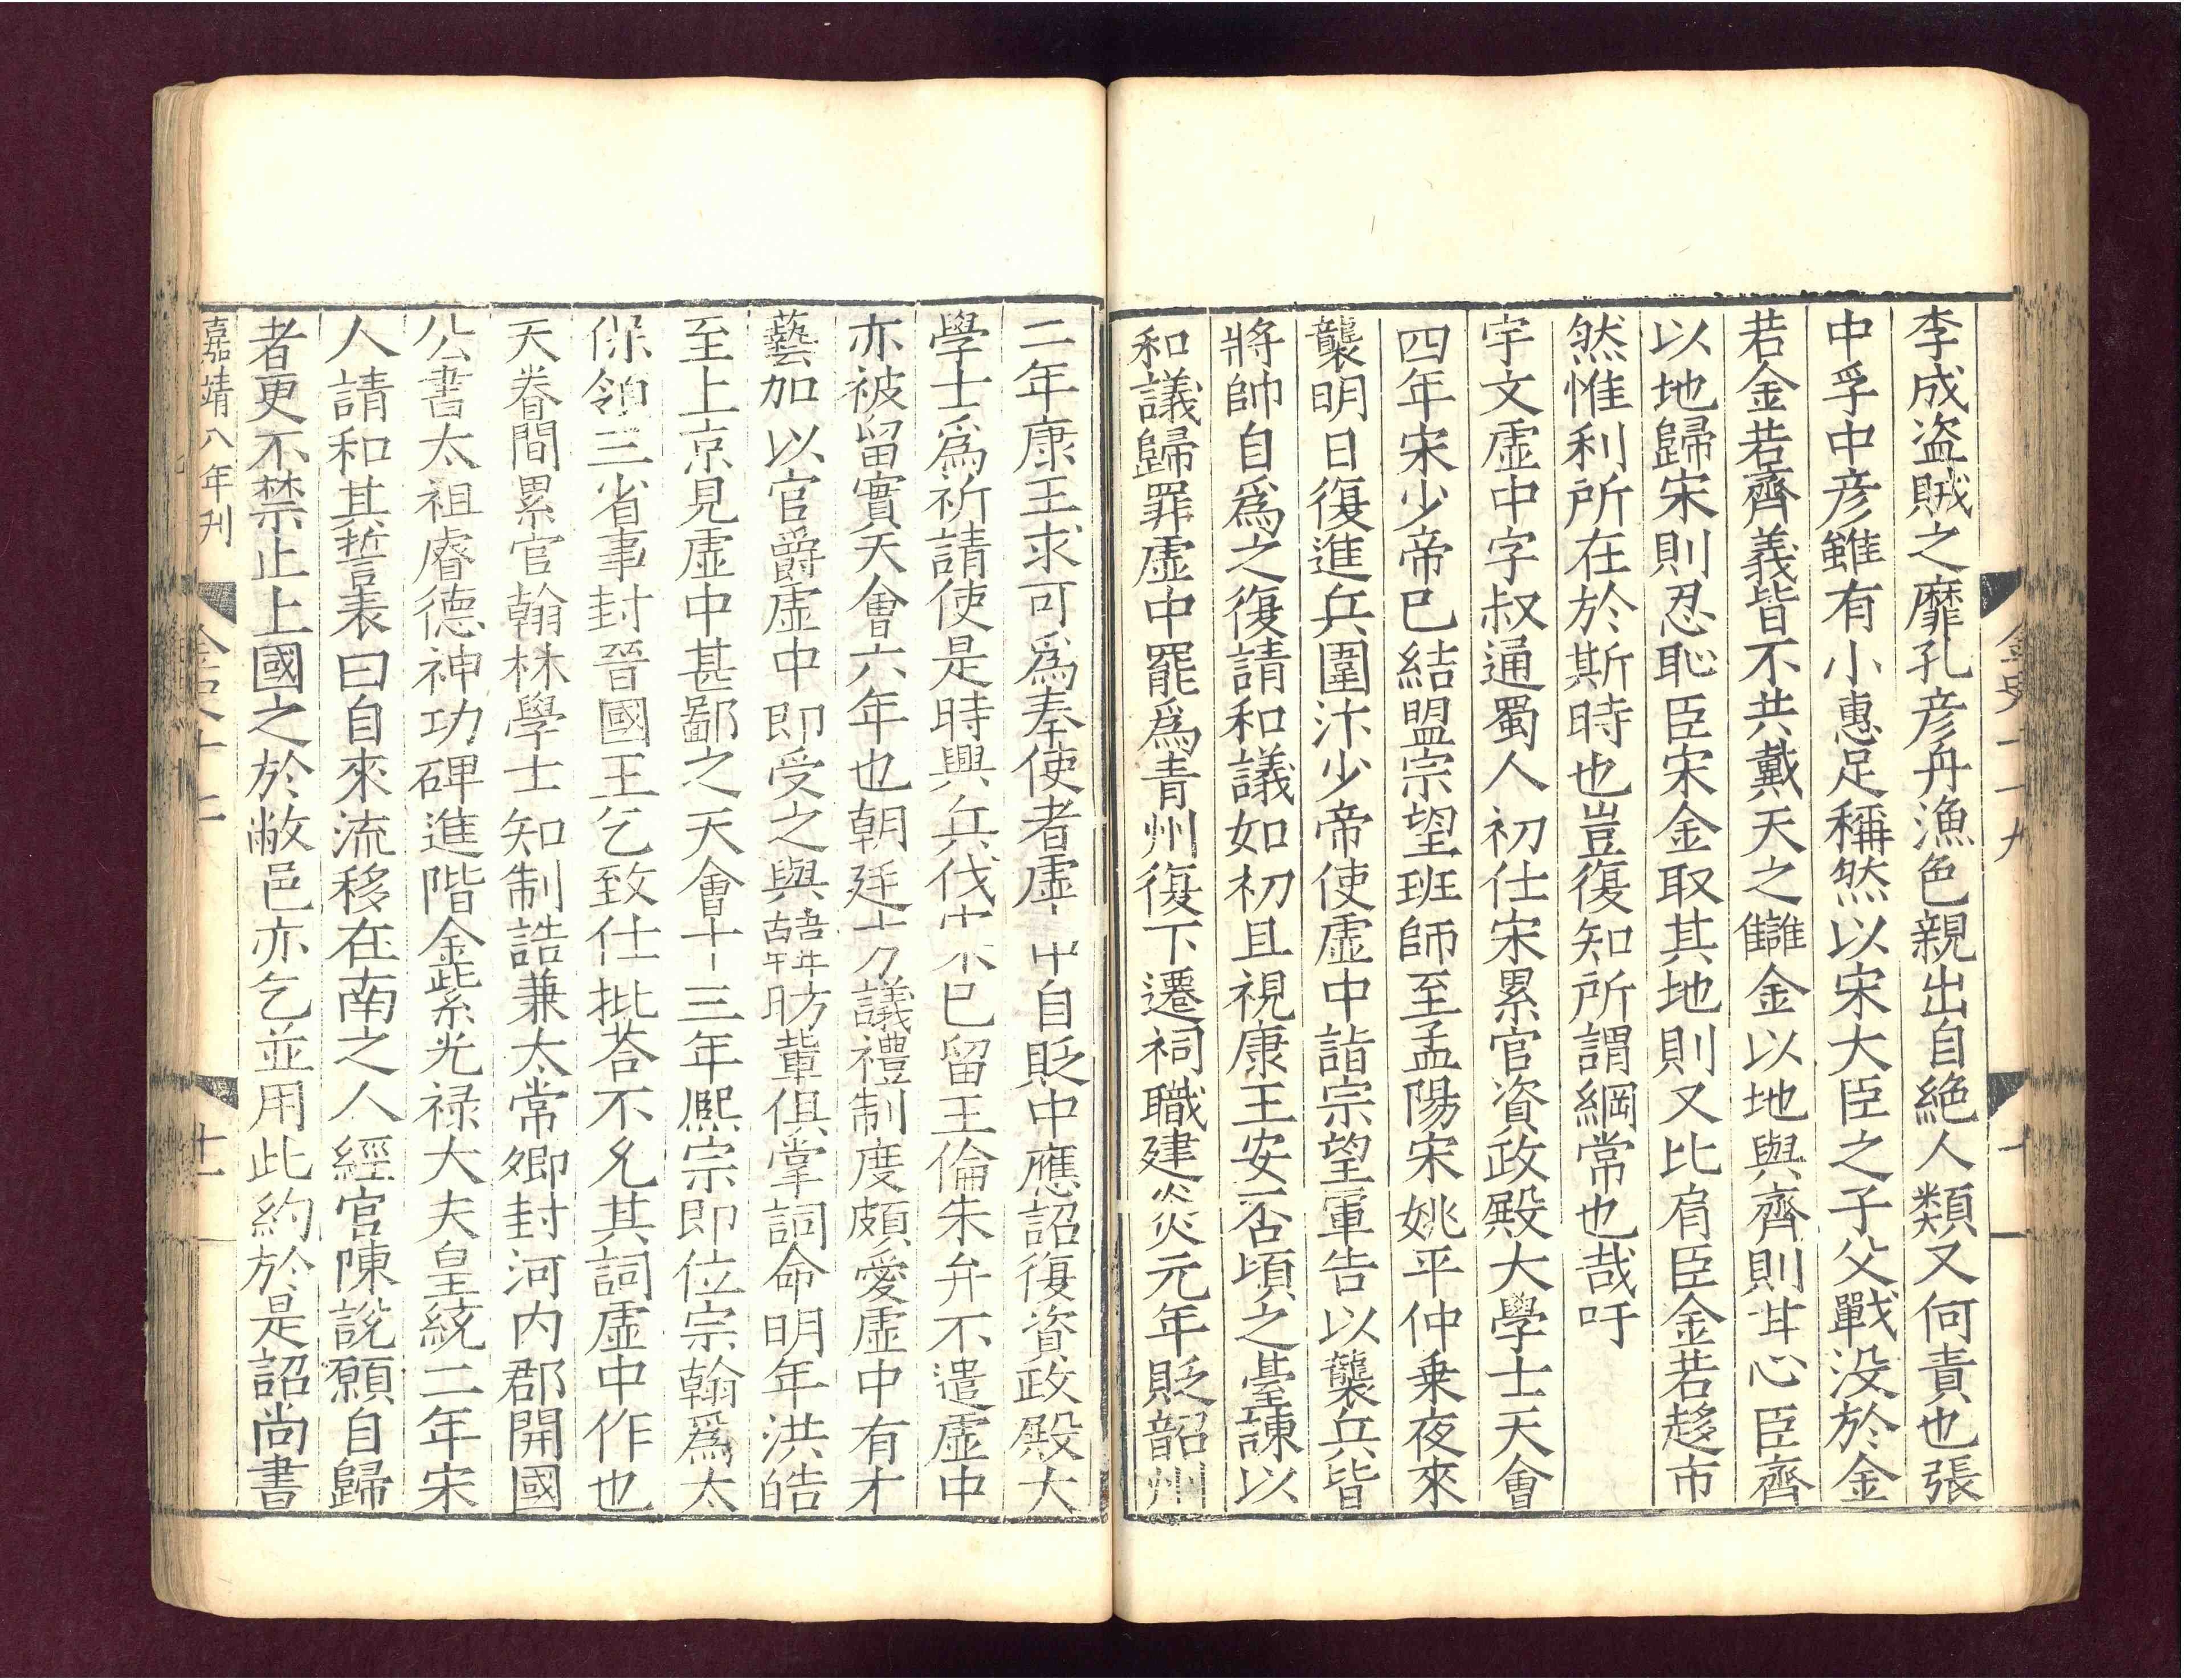 李成盗賊之靡孔彦舟漁色親出自絶人類又何責也張
中孚中彦雖有小惠足稱然以宋大臣之子父戰没於金
若金若齊義皆不共戴天之讎金以地與齊則甘心臣齊
以地歸宋則忍恥臣宋金取其地則又比肩臣金若趍市
然惟利所在於斯時也豈復知所謂綱常也哉吁
宇文虚中字叔通蜀人初仕宋累官資政殿大學士天會
四年宋少帝已結盟宗望班師至孟陽宋姚平仲乗夜來
襲明日復進兵圍汴少帝使虚中詣宗望軍告以襲兵皆
將帥自爲之復請和議如初且視康王安否頃之臺諌以
和議歸罪虚中罷爲青州復下遷祠職建炎元年貶韶州
二年康王求可爲奉使者虚中自貶中應詔復資政殿大
學士爲祈請使是時興兵伐宋已留王倫朱弁不遣虚中
亦被留實天會六年也朝廷方議禮制度頗愛虚中有才
藝加以官爵虚中即受之與韓昉輩俱掌詞命明年洪皓
至上京見虚中甚鄙之天會十三年熈宗即位宗翰爲太
保領三省事封晉國王乞致仕批荅不允其詞虚中作也
天眷間累官翰林學士知制誥兼太常卿封河内郡開國
公書太祖睿德神功碑進階金紫光禄大夫皇統二年宋
人請和其誓表曰自來流移在南之人經官陳説願自歸
者更不禁止上國之於敝邑亦乞並用此約於是詔尚書
嘉靖八年刊
十一